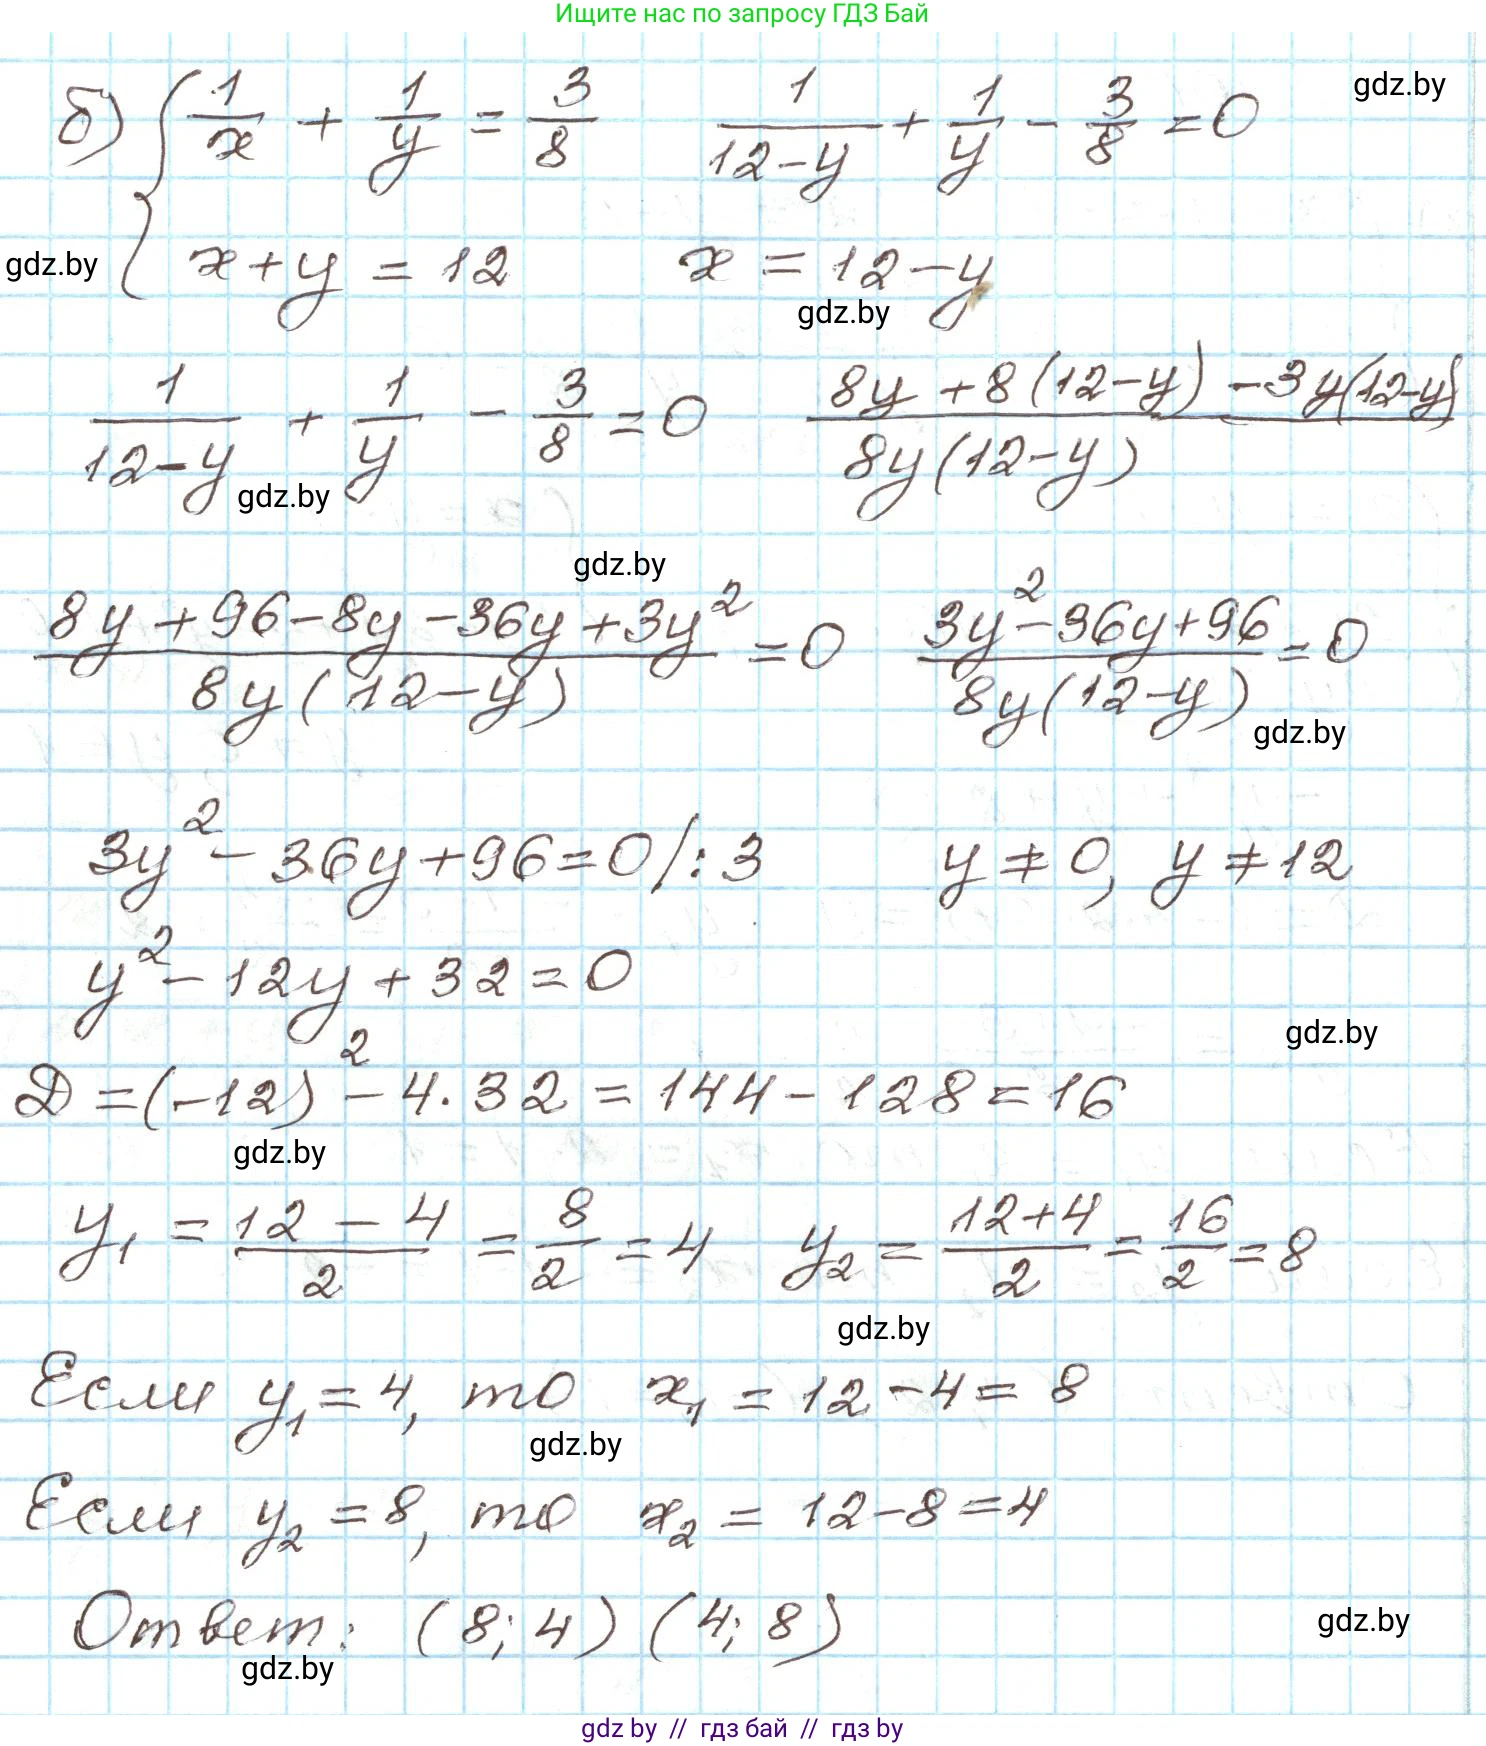 Ищите нас по запросу ГДЗ Бай
б) { 1/x + 1/y = 3/8    1/(12-y) + 1/y - 3/8 = 0
gdz.by
x + y = 12    x = 12 - y
gdz.by
gdz.by
1/(12-y) + 1/y - 3/8 = 0    (8y + 8(12-y) - 3y(12-y))/(8y(12-y))
gdz.by
gdz.by
(8y + 96 - 8y - 36y + 3y²)/(8y(12-y)) = 0    (3y² - 36y + 96)/(8y(12-y)) = 0
gdz.by
3y² - 36y + 96 = 0 /:3    y ≠ 0, y ≠ 12
y² - 12y + 32 = 0
gdz.by
D = (-12)² - 4·32 = 144 - 128 = 16
gdz.by
y₁ = (12 - 4)/2 = 8/2 = 4    y₂ = (12+4)/2 = 16/2 = 8
gdz.by
Если y₁ = 4, то x₁ = 12 - 4 = 8
gdz.by
Если y₂ = 8, то x₂ = 12 - 8 = 4
Ответ: (8; 4) (4; 8)
gdz.by
gdz.by
gdz by // гдз бай // гдз by